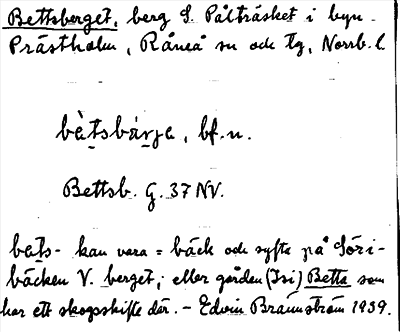 Bettsberget, berg S. Pålträsket i byn
Prästholm, Råneå sn och tg, Norrb. l.
bètsbárja, bf. n.
Bettsb. G. 37 NV.
bets- kan vara = bäck och syfta på Söri-
bäcken V. berget, eller gården (Isi) Betta som
har ett skogsskifte där. – Edvin Brännström 1939.